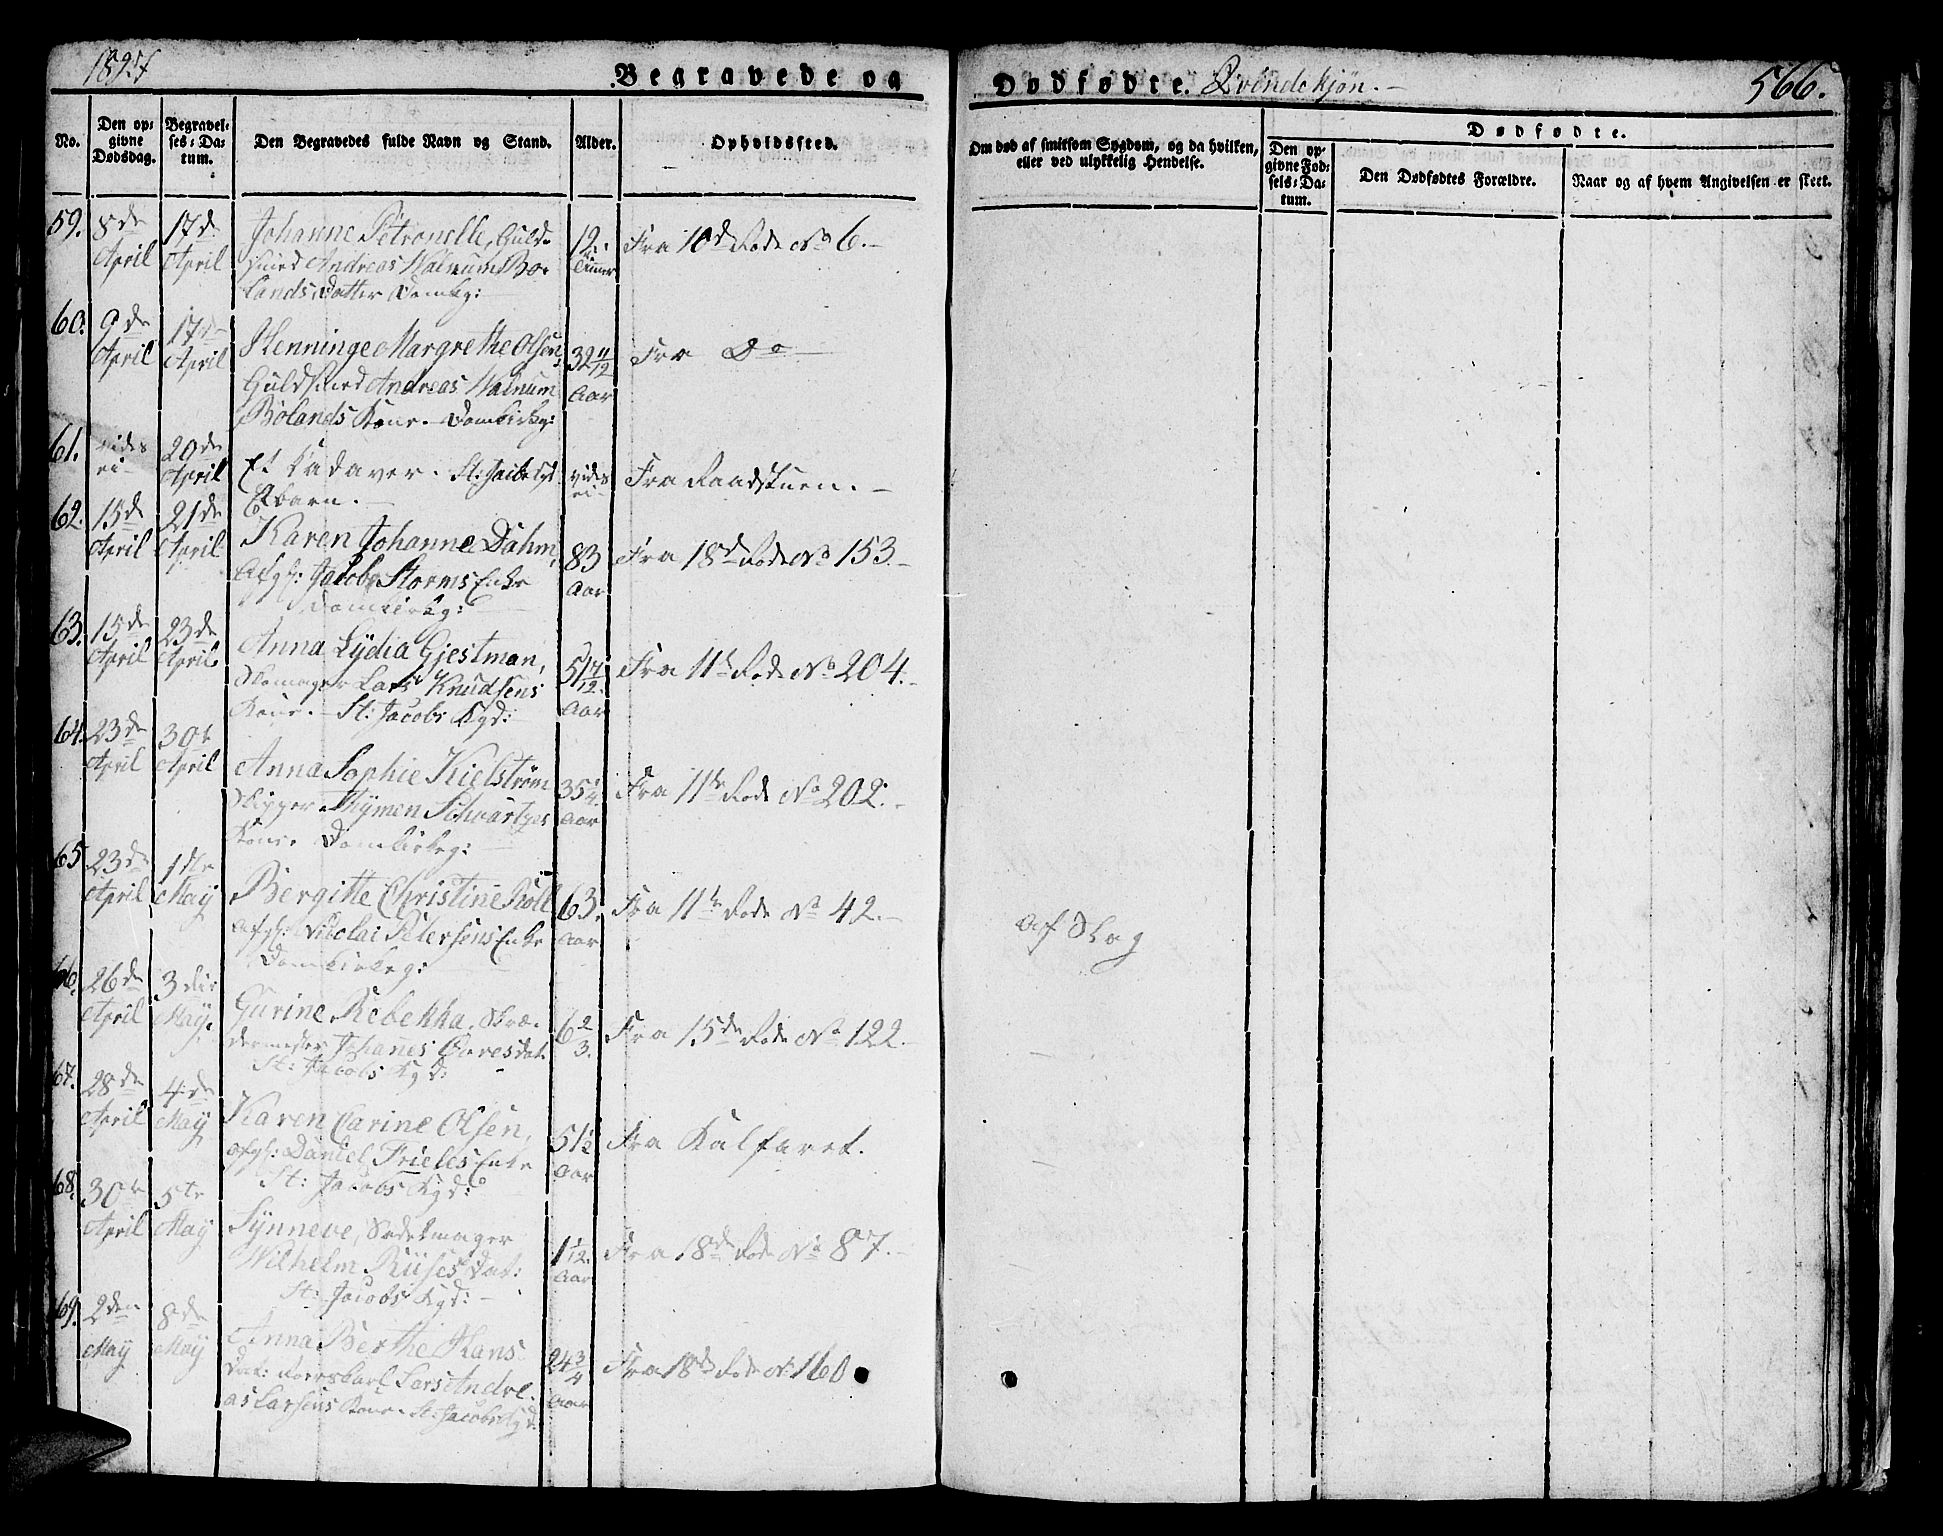 Begravede og Dødfødte. Qvindekjøn.
566.
No. | Den opgivne Dødsdag. | Begravelses-Datum. | Den Begravedes fulde Navn og Stand. | Alder. | Opholdssted. | Om død af smitsom Sygdom, og da hvilken, eller ved ulykkelig Hendelse. | Dødfødte. | Den opgivne Fødsels-Datum. | Den Dødfødtes Forældre. | Naar og af hvem Angivelsen er skeet.
59. 8de April 17de April Johanne Petronelle, Guld-
smed Andreas Walnum Bo-
lands Datter Domkg: 12 Timer Fra 10de Rode No 6.
60. 9de April 17de April Henninge Margrethe Olsen,
Guldsmed Andreas Walnum
Bolands Kone. Domkirkg: 32 11/12 Aar Fra Do
61. vides ei 20de April Et Kadaver. St: Jacobs Kgd
Qbarn. vides ei Fra Raadstuen.
62. 15de April 21de April Karen Johanne Dahm,
Afgh: Jacob Storms Enke
Domkirkg: 83 Aar Fra 18de Rode No 153.
63. 15de April 23de April Anna Lydia Gjestman,
Skomager Lars Knudsens
Kone. St: Jacobs Kgd: Aar Fra 11te Rode No 204.
64. 23de April 30te April Anna Sophie Kielstrøm
Skipper Thymen Schwartzes
Kone. Domkirkg: 35 1/4 Aar Fra 11te Rode No 202.
65. 23de April 1ste May Bergitte Christine Roll
Afgh: Nicolai Petersens Enke
Domkirkeg: 63. Aar Fra 11te Rode No 42. Af Slag
66. 26de April 3die May. Gurine Rebekka, Skræ-
dermester Johanes Dat.
St: Jacobs Kgd: 6 2/3. Fra 15de Rode No 122.
67. 28de April 4de May Karen Carine Olsen,
afgh: Daniel Frieles Enke
St: Jacobs Kgd: 51 1/2 Aar Fra Kalfaret.
68. 30te April 5te May Synneve,
Wilhelm Rüses Dat:
St: Jacobs Kgd: 1 1/12. Aar Fra 18de Rode No 87.
69. 2den May 8de May Anna Berthe Hans
Dat: Lars Andre-
as Larsens Kone. St: Jacobs Kgd: 24 3/4 Aar Fra 18de Rode No 160